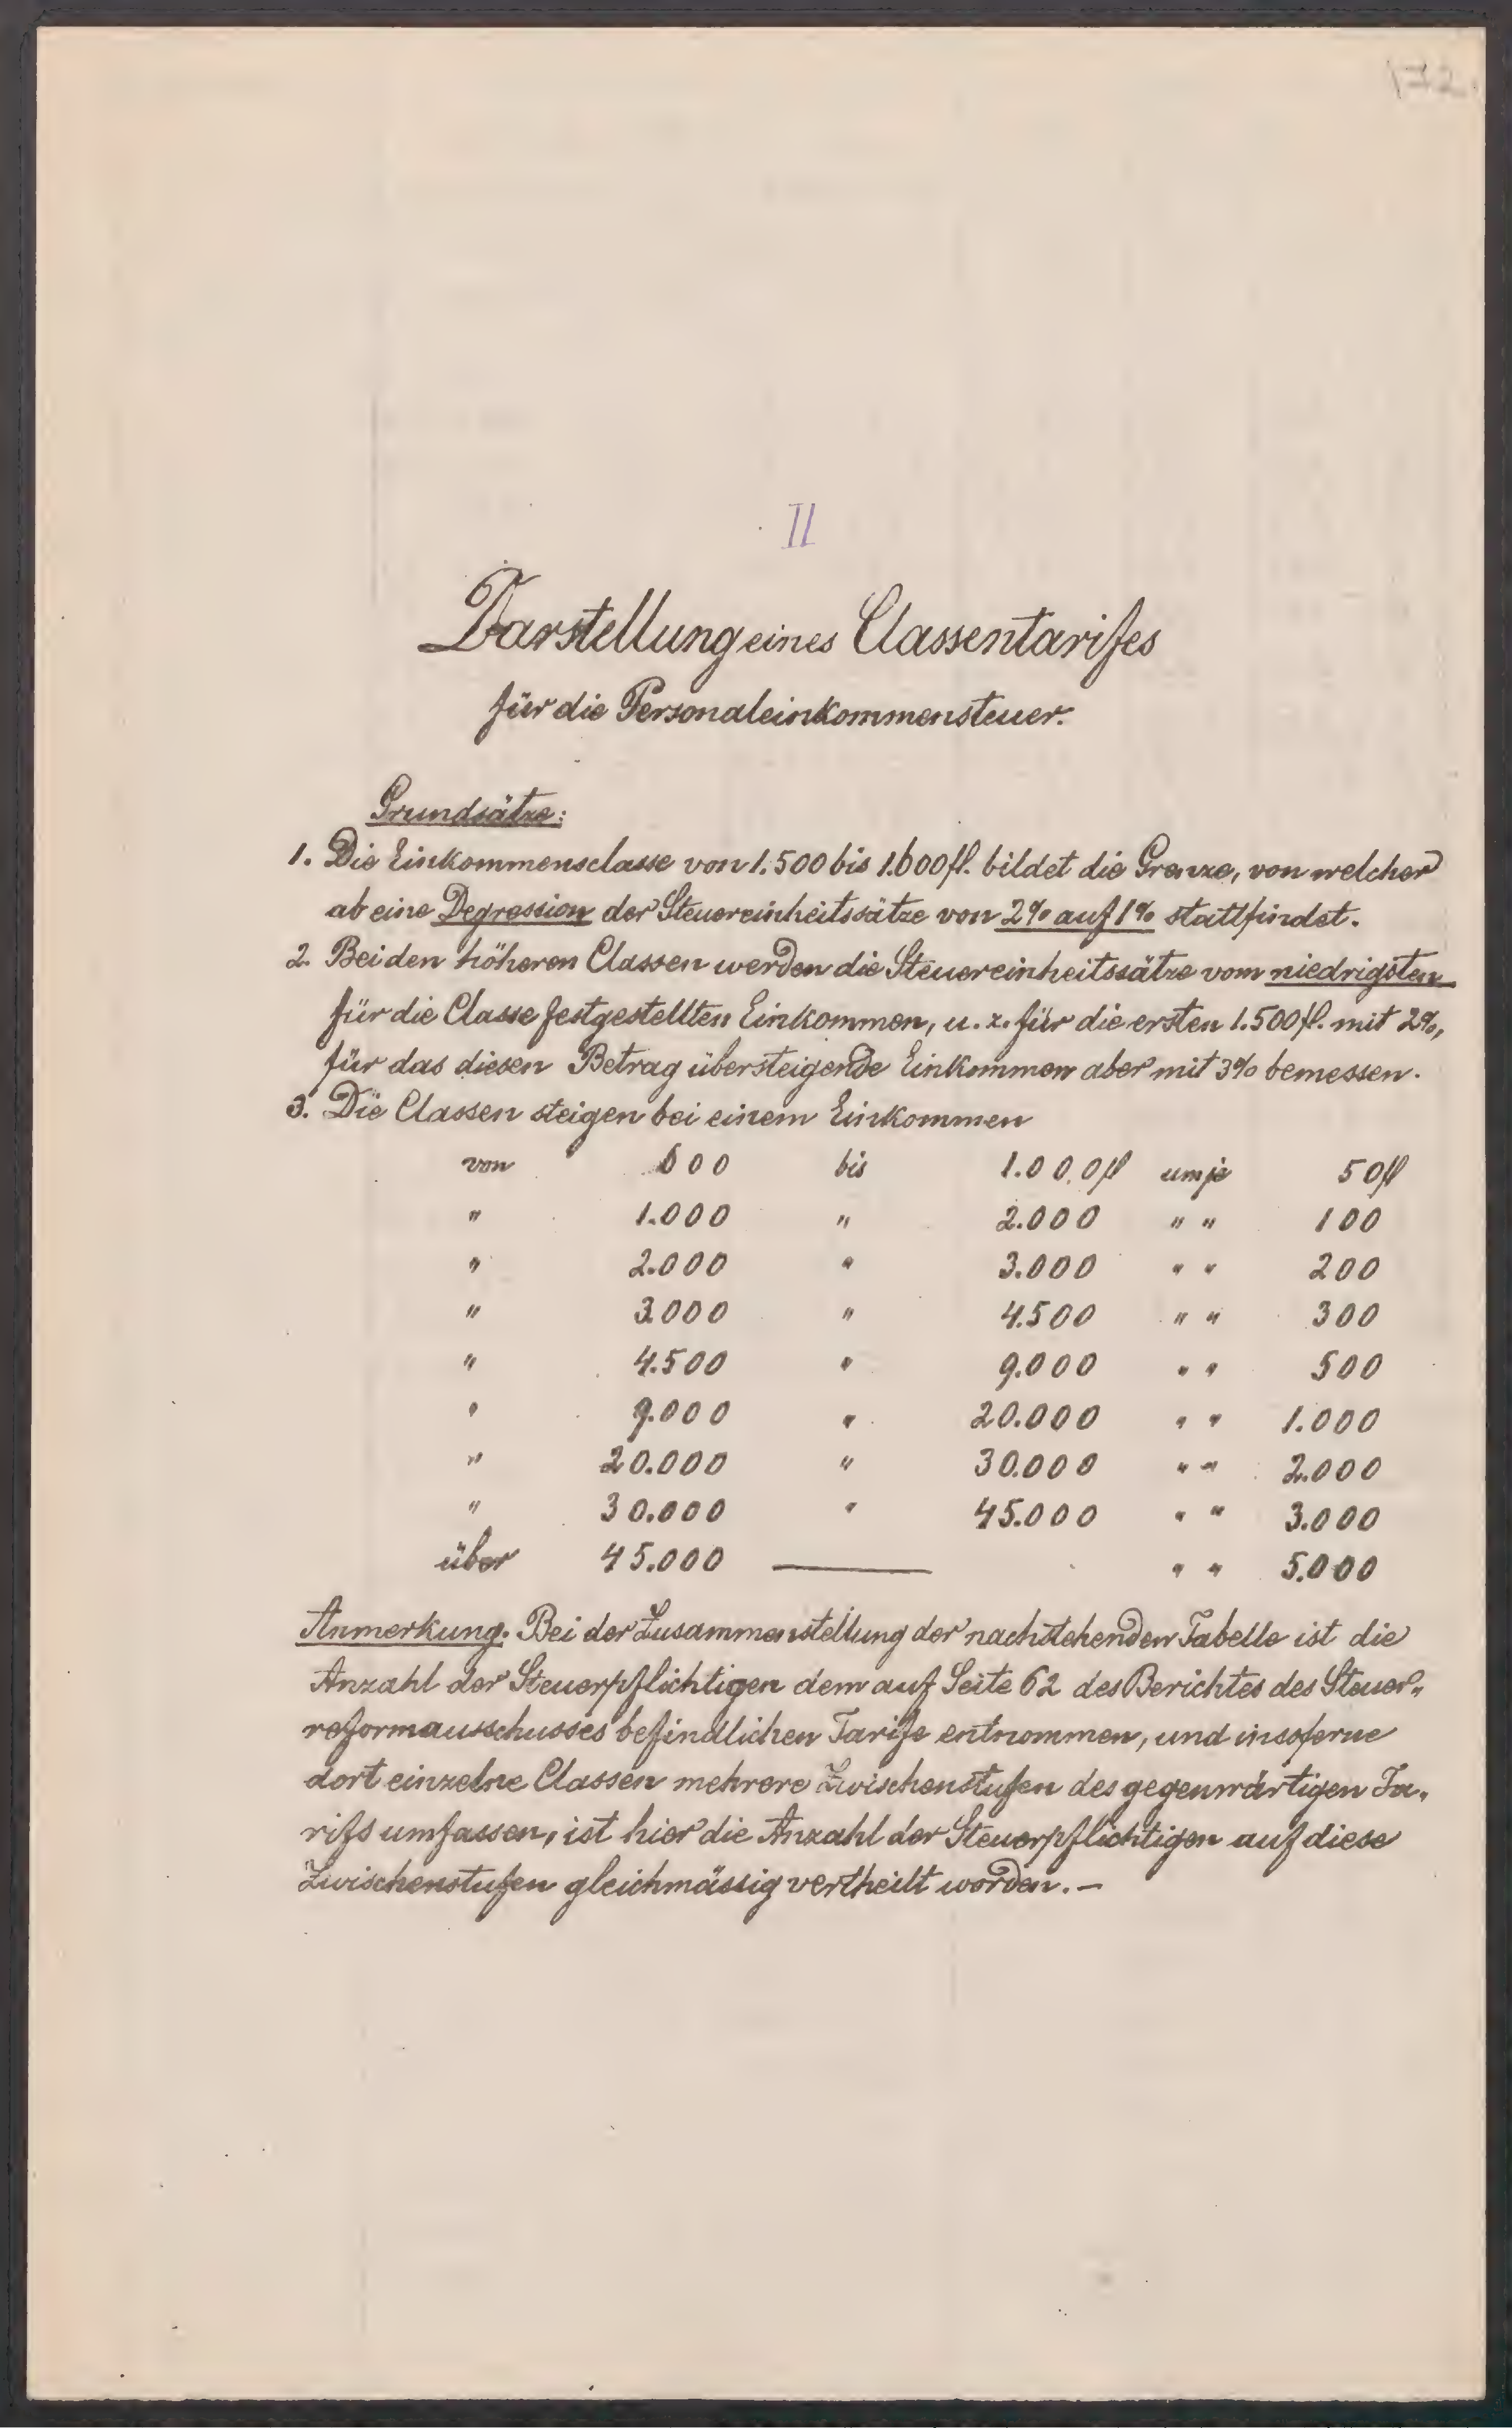 172.
II
Darstellung eines Classentarifes
für die Personaleinkommensteuer.
Grundsätze:
1. Die Einkommensclasse von 1.500 bis 1.600 fl. bildet die Grenze, von welcher
ab eine Degression der Steuereinheitssätze von 2% auf 1% stattfindet.
2. Bei den höheren Classen werden die Steuereinheitssätze vom niedrigsten
für die Classe festgestellten Einkommen, u. z. für die ersten 1.500 fl. mit 2%,
für das diesen Betrag übersteigende Einkommen aber mit 3% bemessen.
3. Die Classen steigen bei einem Einkommen
von 600 bis 1.000 fl um je 50 fl
" 1.000 " 2.000 " " 100
" 2.000 " 3.000 " " 200
" 3.000 " 4.500 " " 300
" 4.500 " 9.000 " " 500
" 9.000 " 20.000 " " 1.000
" 20.000 " 30.000 " " 2.000
" 30.000 " 45.000 " " 3.000
über 45.000 — " " 5.000
Anmerkung. Bei der Zusammenstellung der nachstehenden Tabelle ist die
Anzahl der Steuerpflichtigen dem auf Seite 62 des Berichtes des Steuer„
reformausschusses befindlichen Tarife entnommen, und insoferne
dort einzelne Classen mehrere Zwischenstufen des gegenwärtigen Ta„
rifs umfassen, ist hier die Anzahl der Steuerpflichtigen auf diese
Zwischenstufen gleichmässig vertheilt worden. —